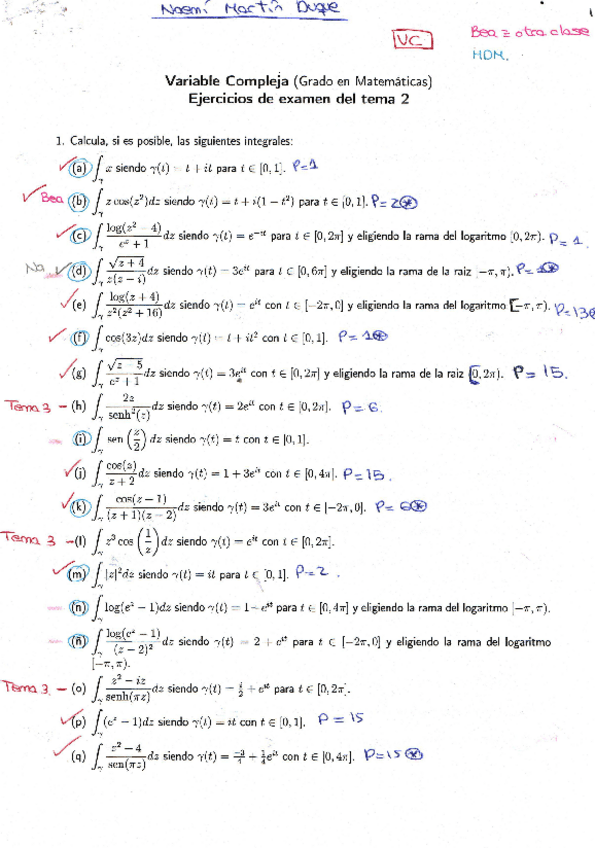 Naemí Martín Duque
1
VC
Bea = otra clase
HDM.
Variable Compleja (Grado en Matemáticas)
Ejercicios de examen del tema 2
1. Calcula, si es posible, las siguientes integrales:
(a) ∫γ x siendo γ(t) = t + it para t ∈ [0, 1]. P=1
Bea (b) ∫γ z cos(z²)dz siendo γ(t) = t + i(1 − t²) para t ∈ [0, 1]. P=2⊛
(c) ∫γ log(z² − 4)/(eᶻ + 1) dz siendo γ(t) = e^(−it) para t ∈ [0, 2π] y eligiendo la rama del logaritmo [0, 2π). P=1.
No (d) ∫γ √(z + 4)/(z(z − i)) dz siendo γ(t) = 3e^(it) para t ∈ [0, 6π] y eligiendo la rama de la raiz [−π, π).
(e) ∫γ log(z + 4)/(z²(z² + 16)) dz siendo γ(t) = e^(it) con t ∈ [−2π, 0] y eligiendo la rama del logaritmo [−π, π). P=13⊛
(f) ∫γ cos(3z)dz siendo γ(t) = t + it² con t ∈ [0, 1]. P=1⊛
(g) ∫γ √(z − 5)/(eᶻ + 1) dz siendo γ(t) = 3e^(it) con t ∈ [0, 2π] y eligiendo la rama de la raiz [0, 2π). P=15.
Tema 3 – (h) ∫γ 2z/senh²(z) dz siendo γ(t) = 2e^(it) con t ∈ [0, 2π]. P=6.
(i) ∫γ sen(z/2) dz siendo γ(t) = t con t ∈ [0, 1].
(j) ∫γ cos(z)/(z + 2) dz siendo γ(t) = 1 + 3e^(it) con t ∈ [0, 4π]. P=15.
(k) ∫γ cos(z − 1)/((z + 1)(z − 2)) dz siendo γ(t) = 3e^(it) con t ∈ [−2π, 0]. P=6⊛
Tema 3 – (l) ∫γ z³ cos(1/z) dz siendo γ(t) = e^(it) con t ∈ [0, 2π].
(m) ∫γ |z|²dz siendo γ(t) = it para t ∈ [0, 1]. P=2.
(n) ∫γ log(eᶻ − 1)dz siendo γ(t) = 1 − e^(it) para t ∈ [0, 4π] y eligiendo la rama del logaritmo [−π, π).
(ñ) ∫γ log(eᶻ − 1)/(z − 2)² dz siendo γ(t) = 2 + e^(it) para t ∈ [−2π, 0] y eligiendo la rama del logaritmo
[−π, π).
Tema 3 – (o) ∫γ (z² − iz)/senh(πz) dz siendo γ(t) = i/2 + e^(it) para t ∈ [0, 2π].
(p) ∫γ (eᶻ − 1)dz siendo γ(t) = it con t ∈ [0, 1]. P=15
(q) ∫γ (z² − 4)/sen(πz) dz siendo γ(t) = −3/4 + 1/4 e^(it) con t ∈ [0, 4π]. P=15⊛